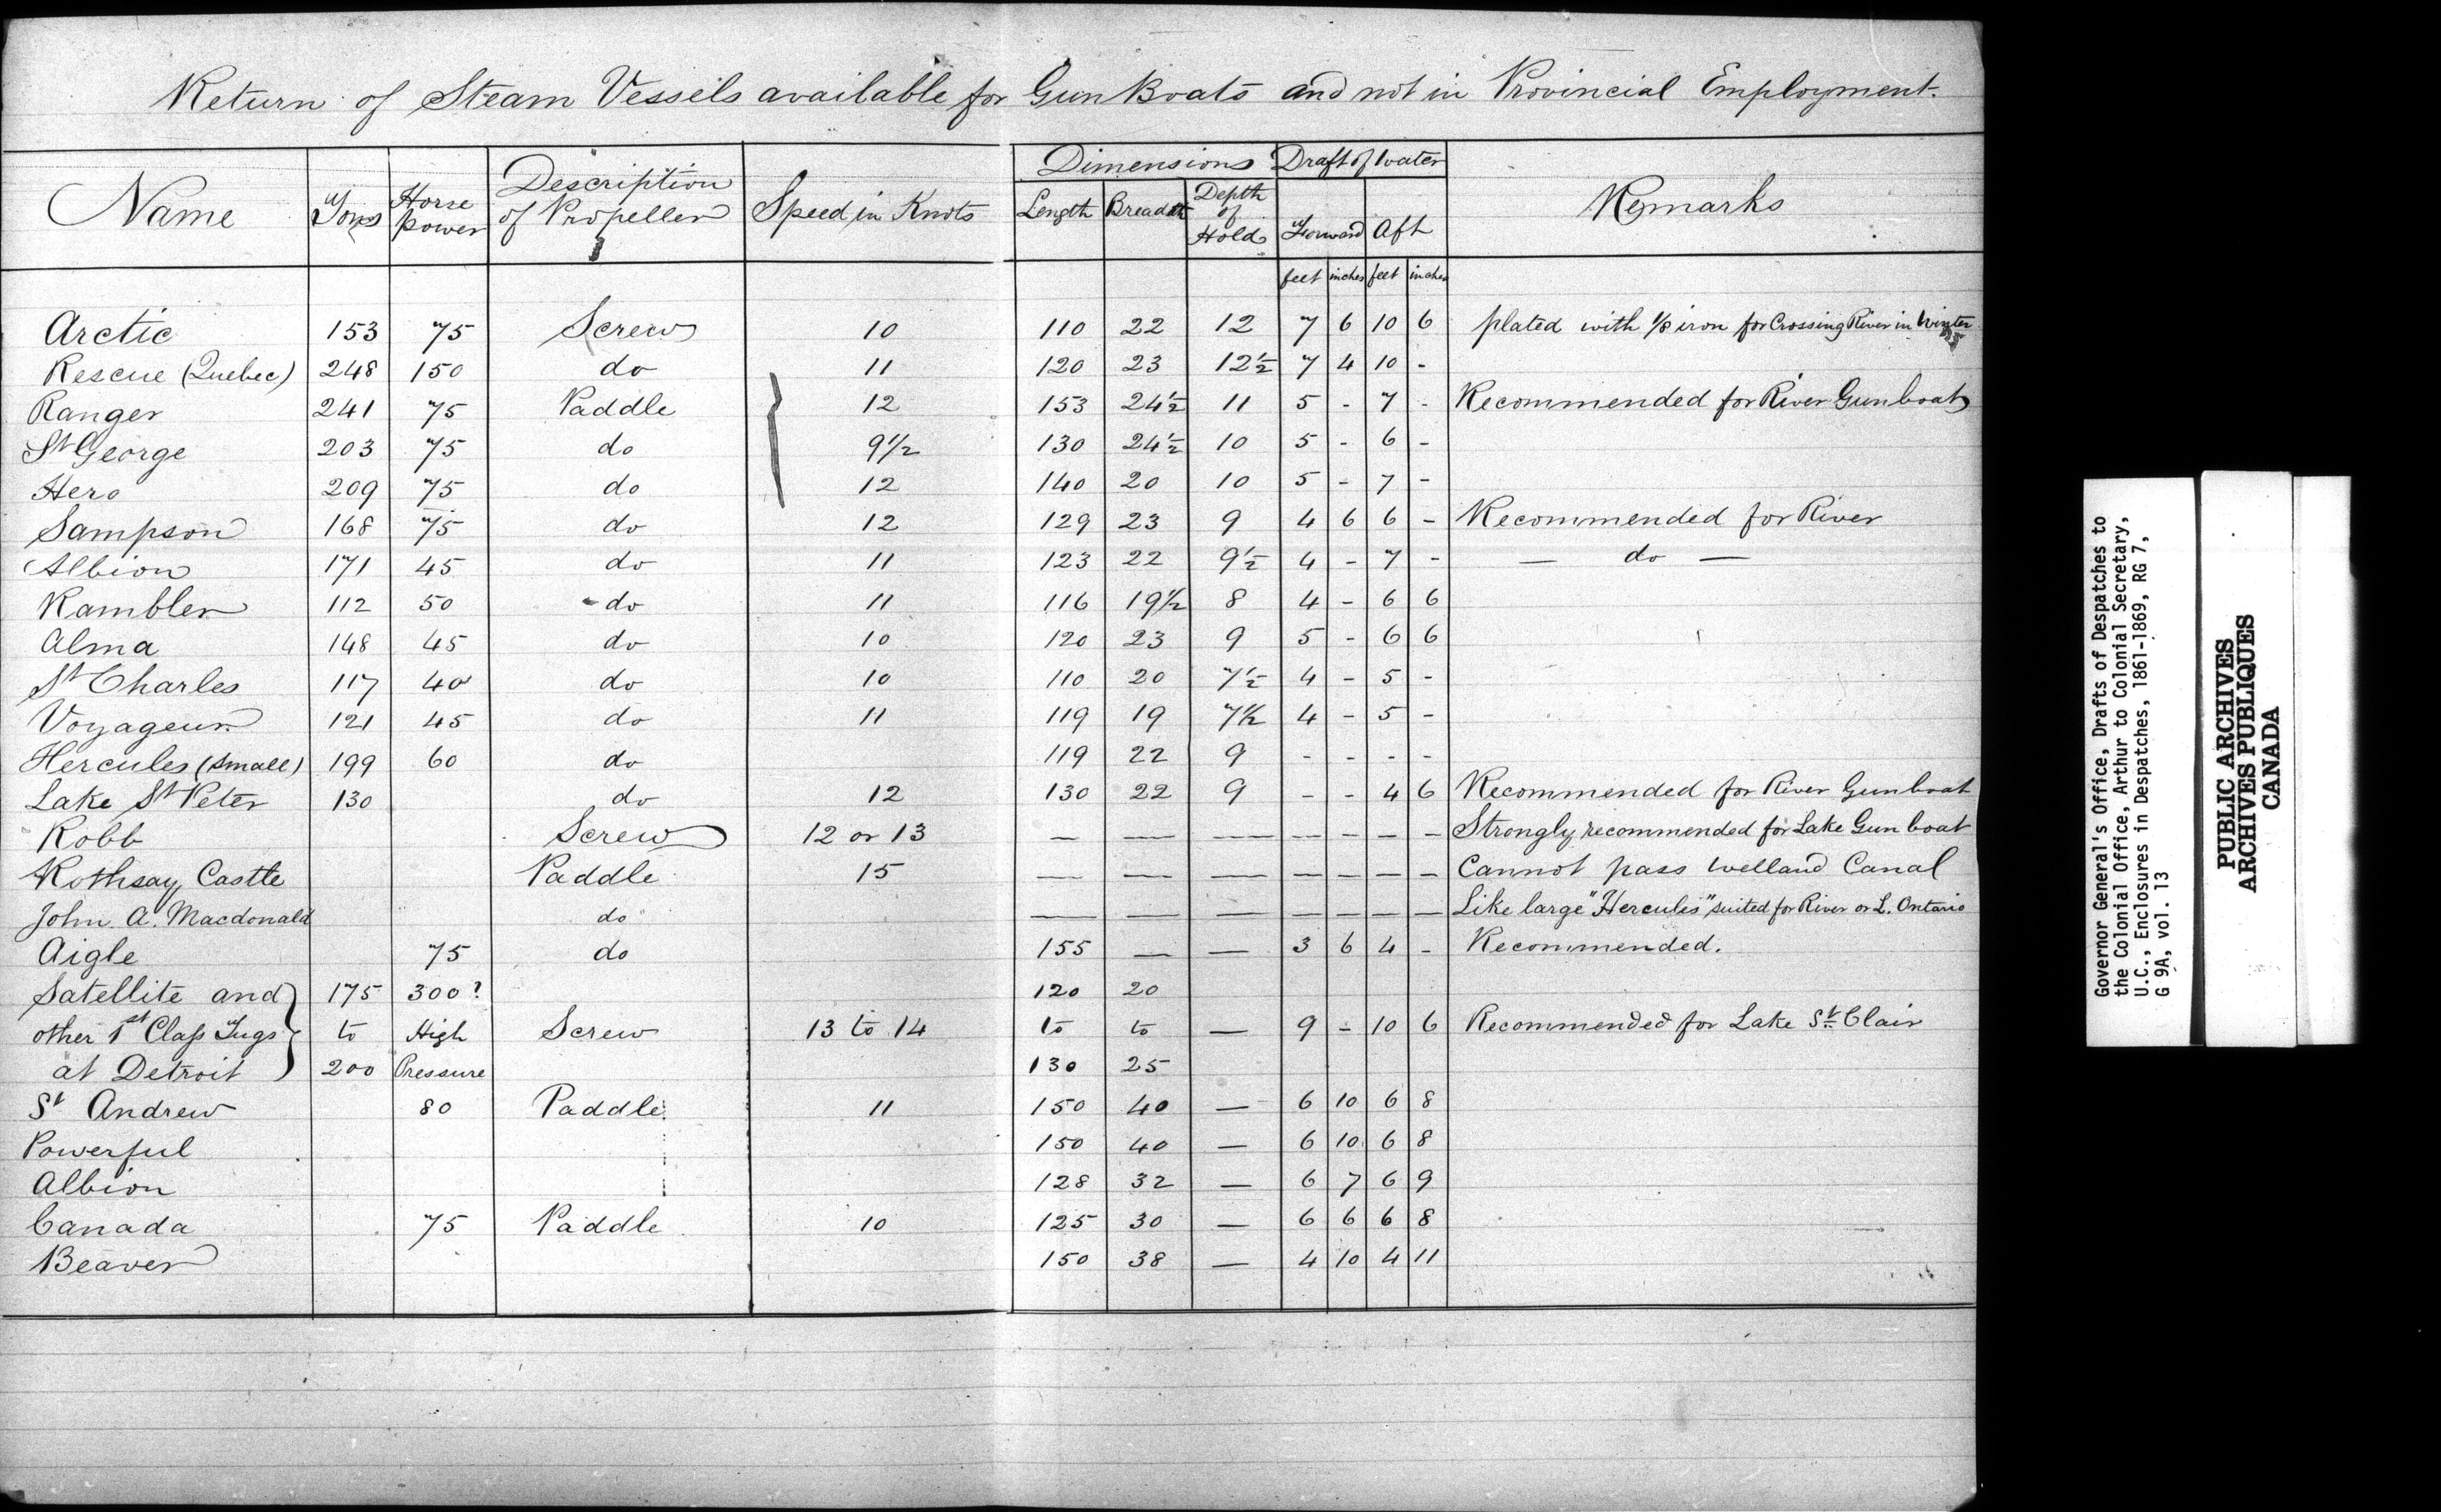 Return of Steam Vessels available for Gun Boats and not in Provincial Employment.
Name Tons Horse power Description of Propeller Speed in Knots Dimensions Length Breadth Depth of Hold Draft of water Forward Aft Remarks
feet inches feet inches
Arctic 153 75 Screw 10 110 22 12 7 6 10 6 plated with 1/8 iron for Crossing River in Winter
Rescue (Quebec) 248 150 do 11 120 23 12½ 7 4 10 -
Ranger 241 75 Paddle 12 153 24½ 11 5 - 7 - Recommended for River Gunboat
St George 203 75 do 9½ 130 24½ 10 5 - 6 -
Hero 209 75 do 12 140 20 10 5 - 7 -
Sampson 168 75 do 12 129 23 9 4 6 6 - Recommended for River
Albion 171 45 do 11 123 22 9½ 4 - 7 - — do —
Rambler 112 50 do 11 116 19½ 8 4 - 6 6
Alma 148 45 do 10 120 23 9 5 - 6 6
St Charles 117 40 do 10 110 20 7½ 4 - 5 -
Voyageur 121 45 do 11 119 19 7½ 4 - 5 -
Hercules (small) 199 60 do 119 22 9 - - - -
Lake St Peter 130 do 12 130 22 9 - - 4 6 Recommended for River Gunboat
Robb Screw 12 or 13 — — — — — — — Strongly recommended for Lake Gun boat
Rothsay Castle Paddle 15 — — — — — — — Cannot pass Welland Canal
John A. Macdonald do — — — — — — — Like large "Hercules" suited for River or L. Ontario
Aigle 75 do 155 — — 3 6 4 - Recommended.
Satellite and 175 300? 120 20
other 1st Class Tugs to High Screw 13 to 14 to to — 9 - 10 6 Recommended for Lake St Clair
at Detroit 200 Pressure 130 25
St Andrew 80 Paddle 11 150 40 — 6 10 6 8
Powerful 150 40 — 6 10 6 8
Albion 128 32 — 6 7 6 9
Canada 75 Paddle 10 125 30 — 6 6 6 8
Beaver 150 38 — 4 10 4 11
Governor General's Office, Drafts of Despatches to
the Colonial Office, Arthur to Colonial Secretary,
U.C., Enclosures in Despatches, 1861-1869, RG 7,
G 9A, vol. 13
PUBLIC ARCHIVES
ARCHIVES PUBLIQUES
CANADA